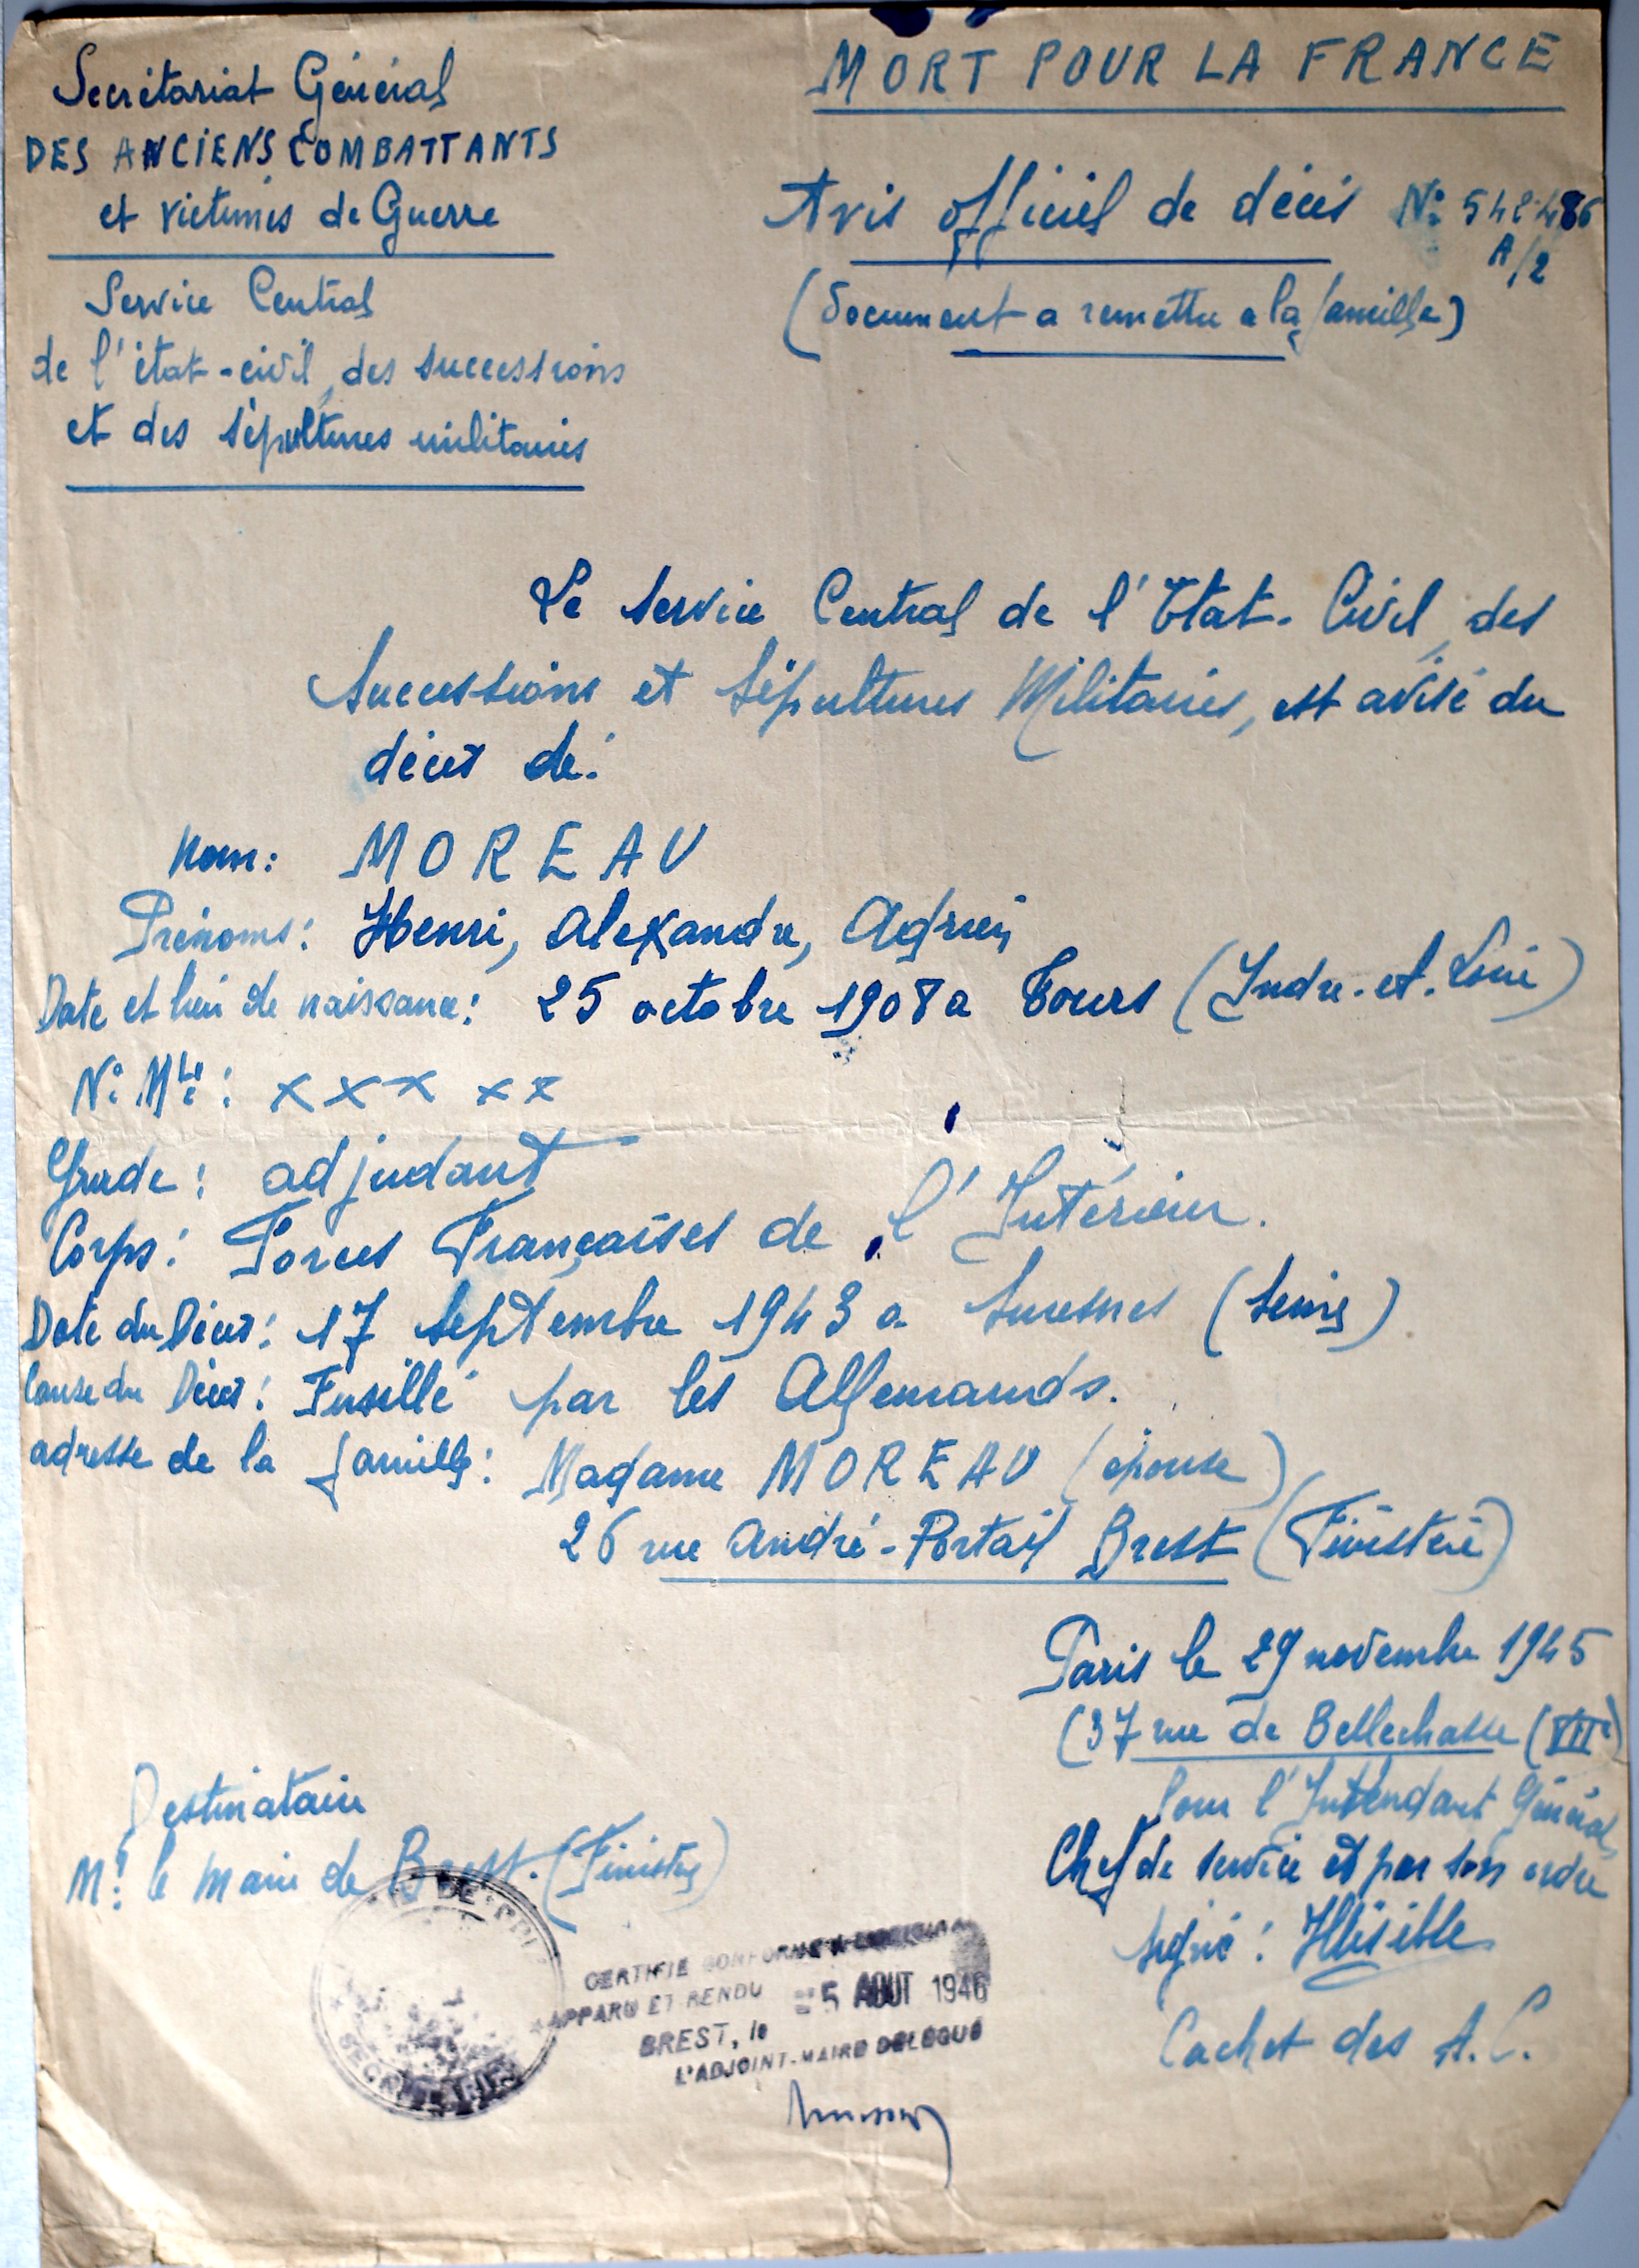 Secrétariat Général
DES ANCIENS COMBATTANTS
et victimes de Guerre
Service Central
de l'état-civil, des successions
et des sépultures militaires
MORT POUR LA FRANCE
Avis officiel de décés N° 548486
A/2
(Document a remettre a la famille)
Le Service Central de l'Etat-Civil, des
Successions et Sépultures Militaires, est avisé du
décès de:
Nom: MOREAU
Prénoms: Henri, Alexandre, Adrien
Date et lieu de naissance: 25 octobre 1908 a Tours (Indre-et-Loire)
N° Mle: x x x x x
Grade: adjudant
Corps: Forces Françaises de l'Intérieur.
Date du Décès: 17 Septembre 1943 a Suresnes (Seine)
Cause du Décès: Fusillé par les Allemands.
adresse de la famille: Madame MOREAU (épouse)
26 rue André-Portail Brest (Finistère)
Paris le 29 novembre 1945
(37 rue de Bellechasse (VIIe)
Pour l'Intendant Général
Chef de service et par son ordre
signé: Illisible
Cachet des A.C.
Destinataire
Mr. le Maire de Brest. (Finistère)
CERTIFIE CONFORME A
APPARU ET RENDU
BREST, le 5 AOUT 1946
L'ADJOINT-MAIRE DELEGUE